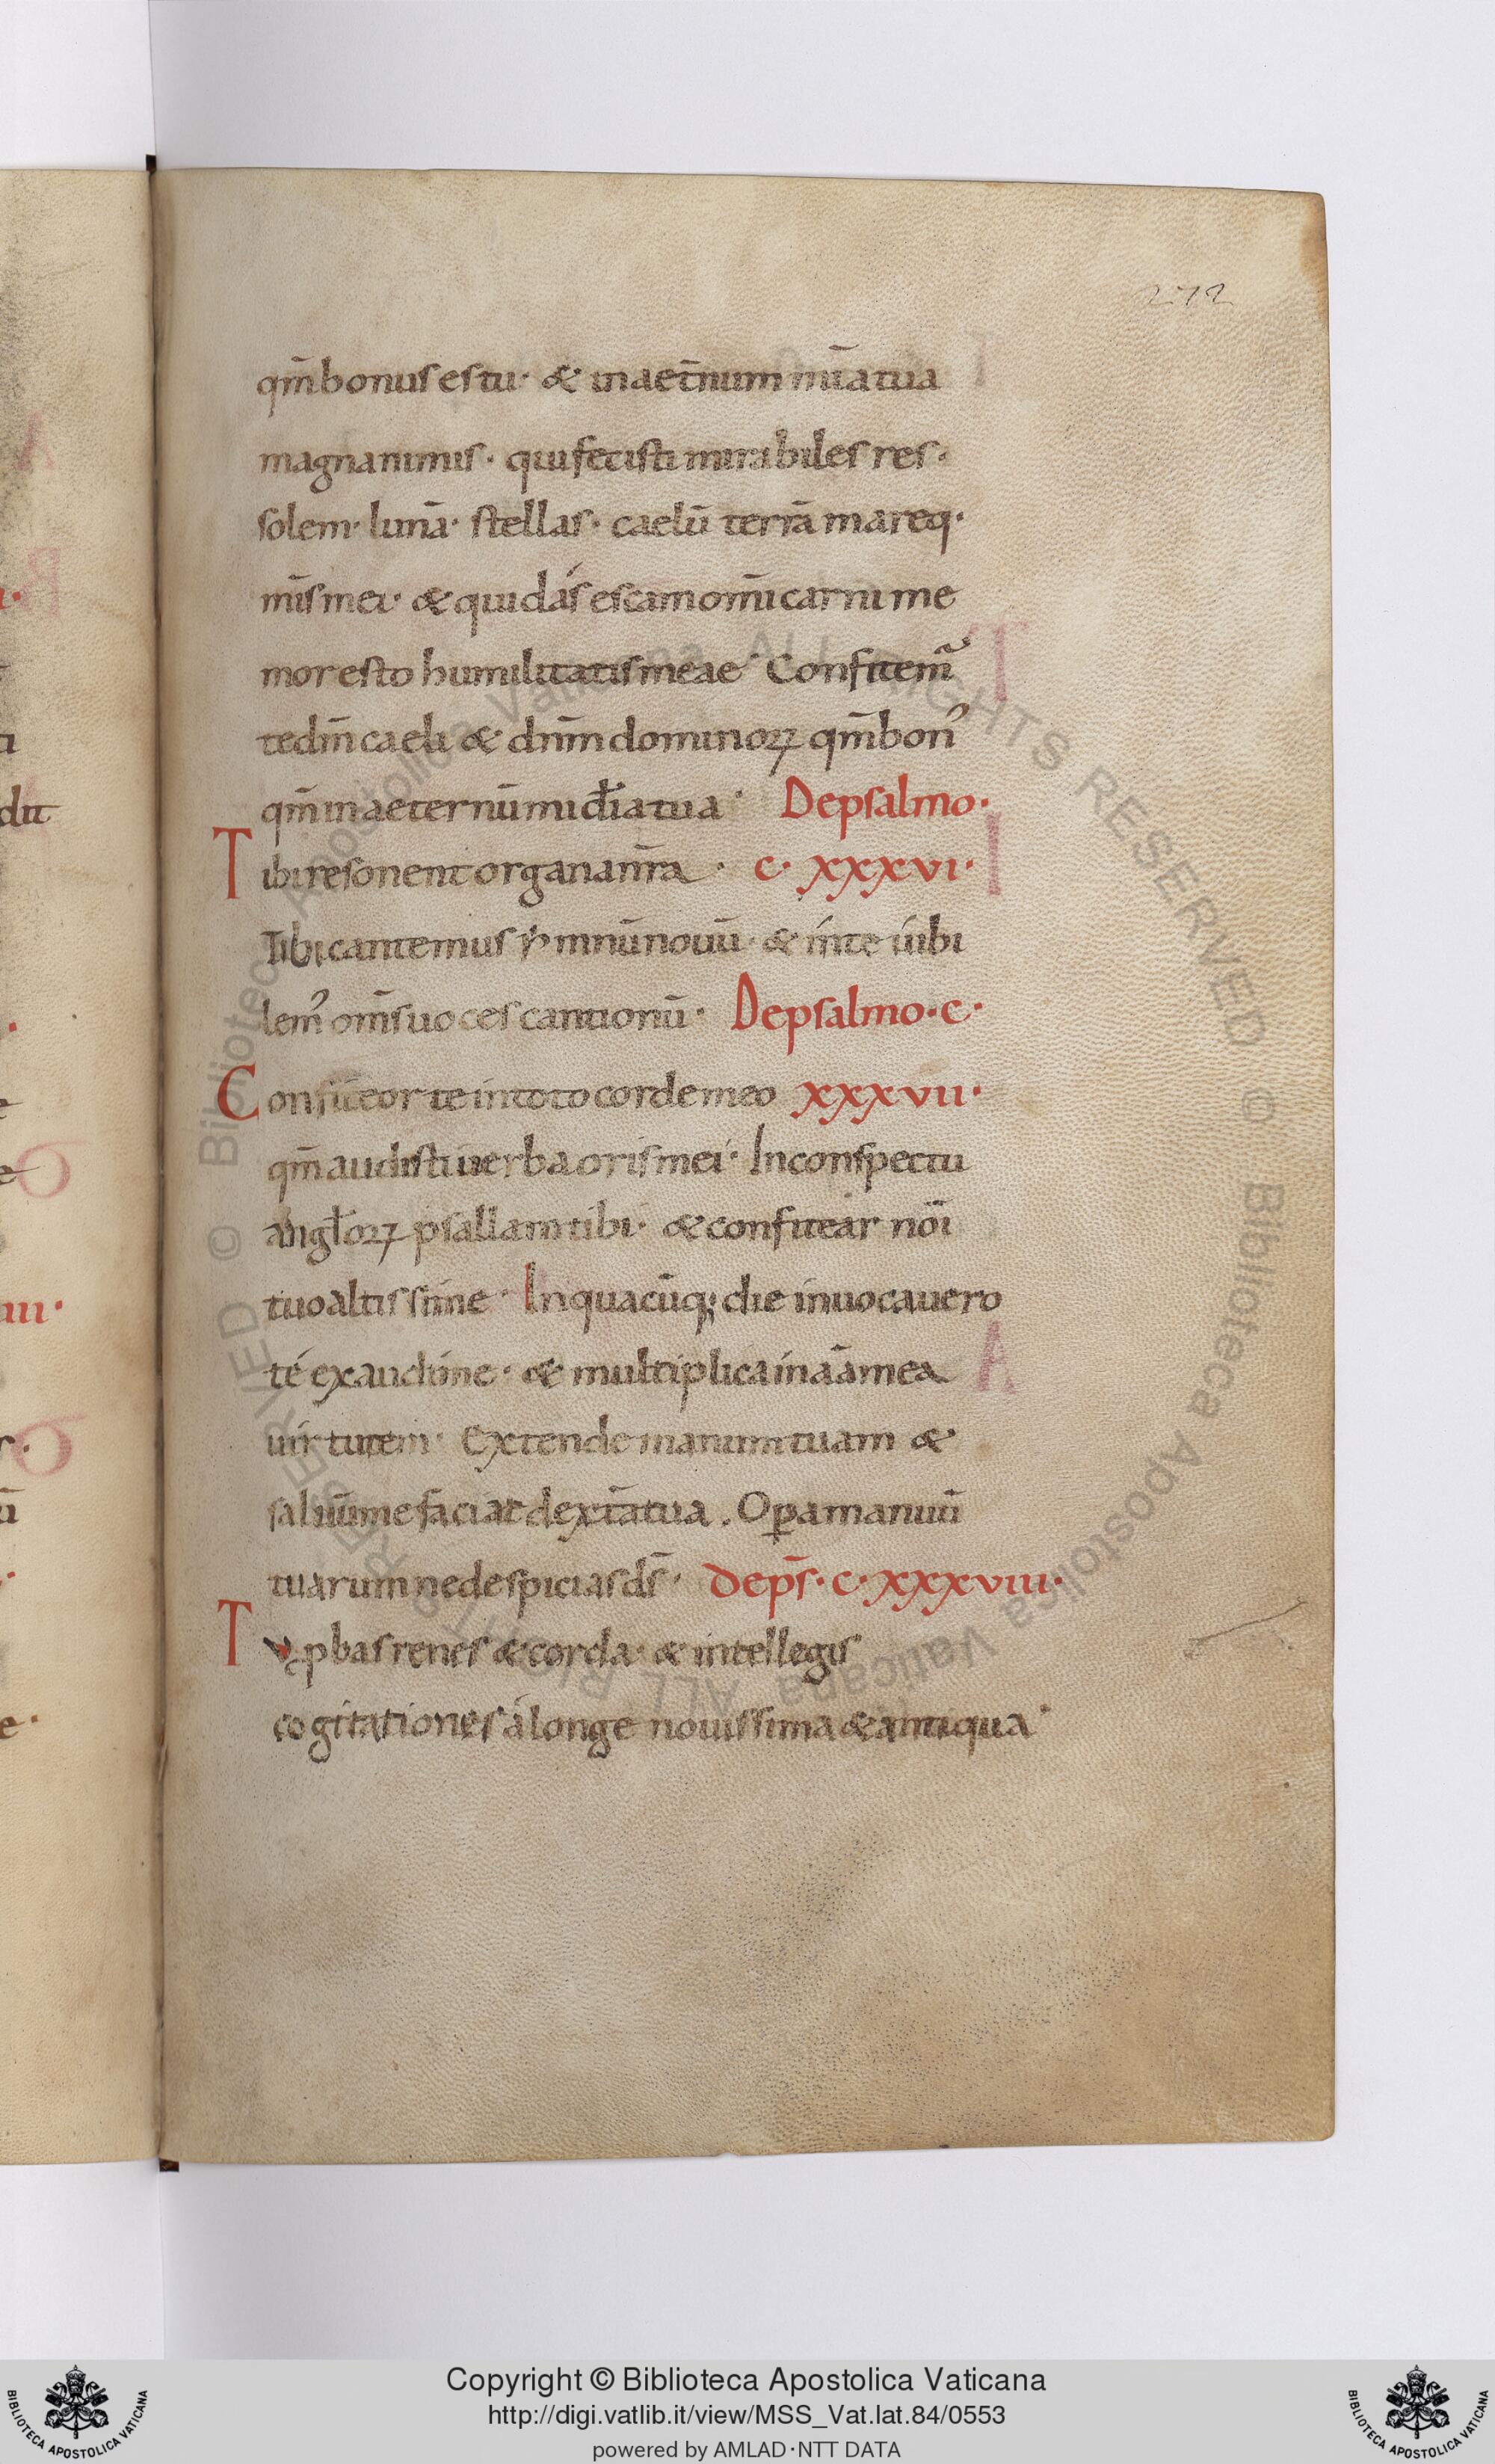 272
qm̄ bonus es tu· & in aet̄num mīa tua
magnanimis· qui fecisti mirabiles res·
solem· lunā· stellas· caelū terrā mareq·
mis̄ mei· & qui dás escam omī carni me
mor esto humilitatis meae· Confitem̄
te dm̄ caeli & dnm̄ dominoꝝ qm̄ bon᾽
qm̄ in aeternū mīdia tua· De psalmo·
Tibi resonent organa nr̄a· c· xxxvi·
Tibi cantemus ẏmnū nouū· & in te iubi
lem᾽ om̄s uoces cantionū· De psalmo· c·
Confiteor te in toto corde meo xxxvii·
qm̄ audisti uerba oris mei· In conspectu
angl̄oꝝ psallam tibi· & confitear nōi
tuo altissime· In quacūq; die inuocauero
té exaudi me· & multiplica in aā mea
uirtutem· Extende manum tuam &
saluū me faciat dext̄a tua. Oꝑa manuū
tuarum ne despicias ds̄· De ps̄· c· xxxviii·
Tu ꝓbas renes & corda· & intellegis
cogitationes á longe nouissima & antiqua·
Copyright © Biblioteca Apostolica Vaticana
http://digi.vatlib.it/view/MSS_Vat.lat.84/0553
powered by AMLAD·NTT DATA
BIBLIOTECA APOSTOLICA VATICANA
BIBLIOTECA APOSTOLICA VATICANA
© Biblioteca Apostolica Vaticana ALL RIGHTS RESERVED © Biblioteca Apostolica Vaticana ALL RIGHTS RESERVED